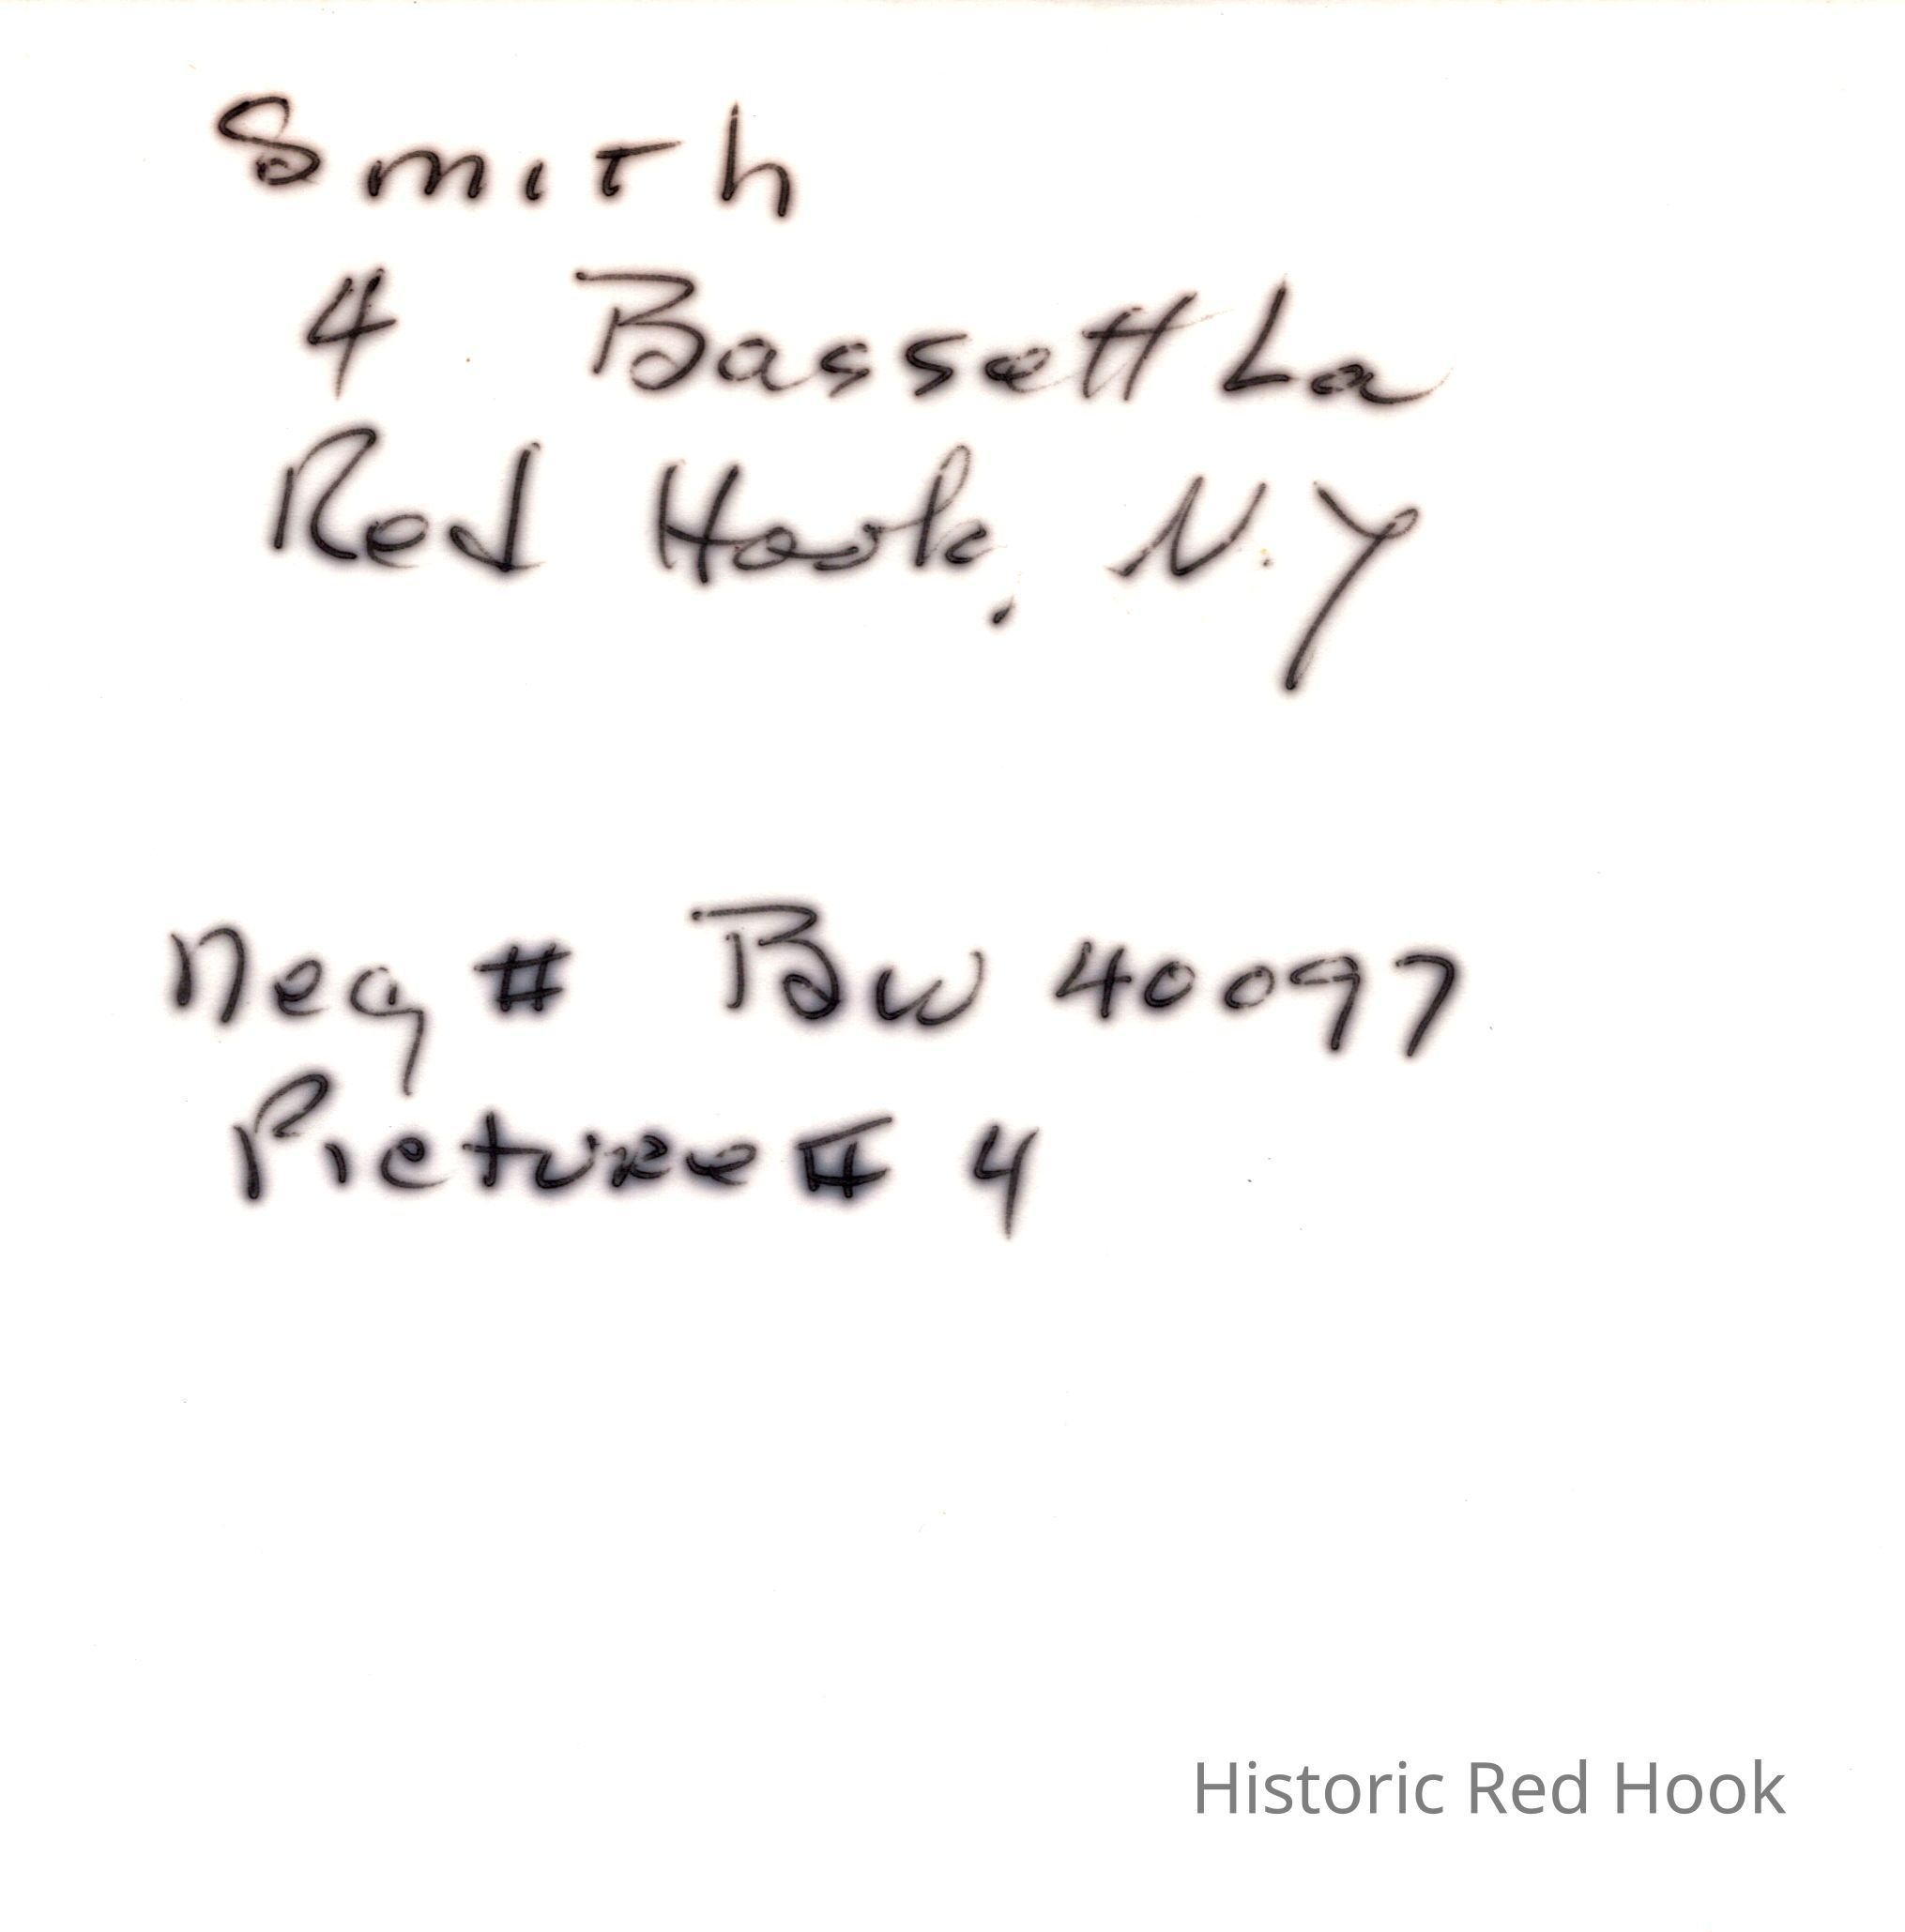 Smith
4 Bassett La
Red Hook, N.Y
Neg # BW 40097
Picture # 4
Historic Red Hook